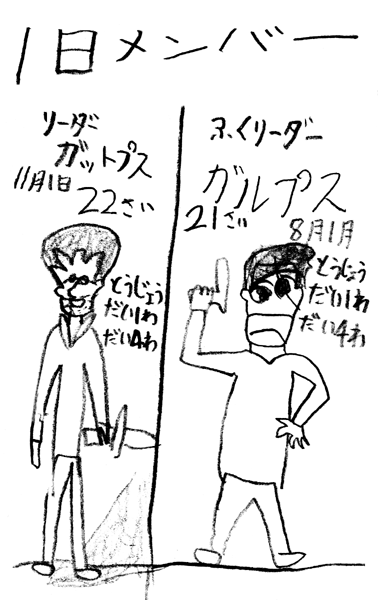 1日メンバー
リーダー
ガットプス
11月1日
22さい
とうじょう
だい1わ
だい4わ
ふくリーダー
ガルプス
21さい
8月1月
とうじょう
だい1わ
だい4わ